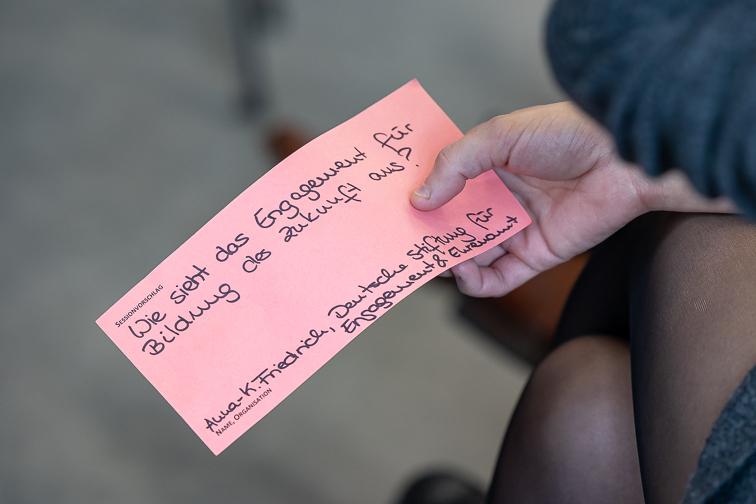 SESSIONVORSCHLAG
Wie sieht das Engagement für
Bildung des zukunft aus?
Anna-K. Friedrich, Deutsche Stiftung für
Engagement & Ehrenamt
NAME, ORGANISATION